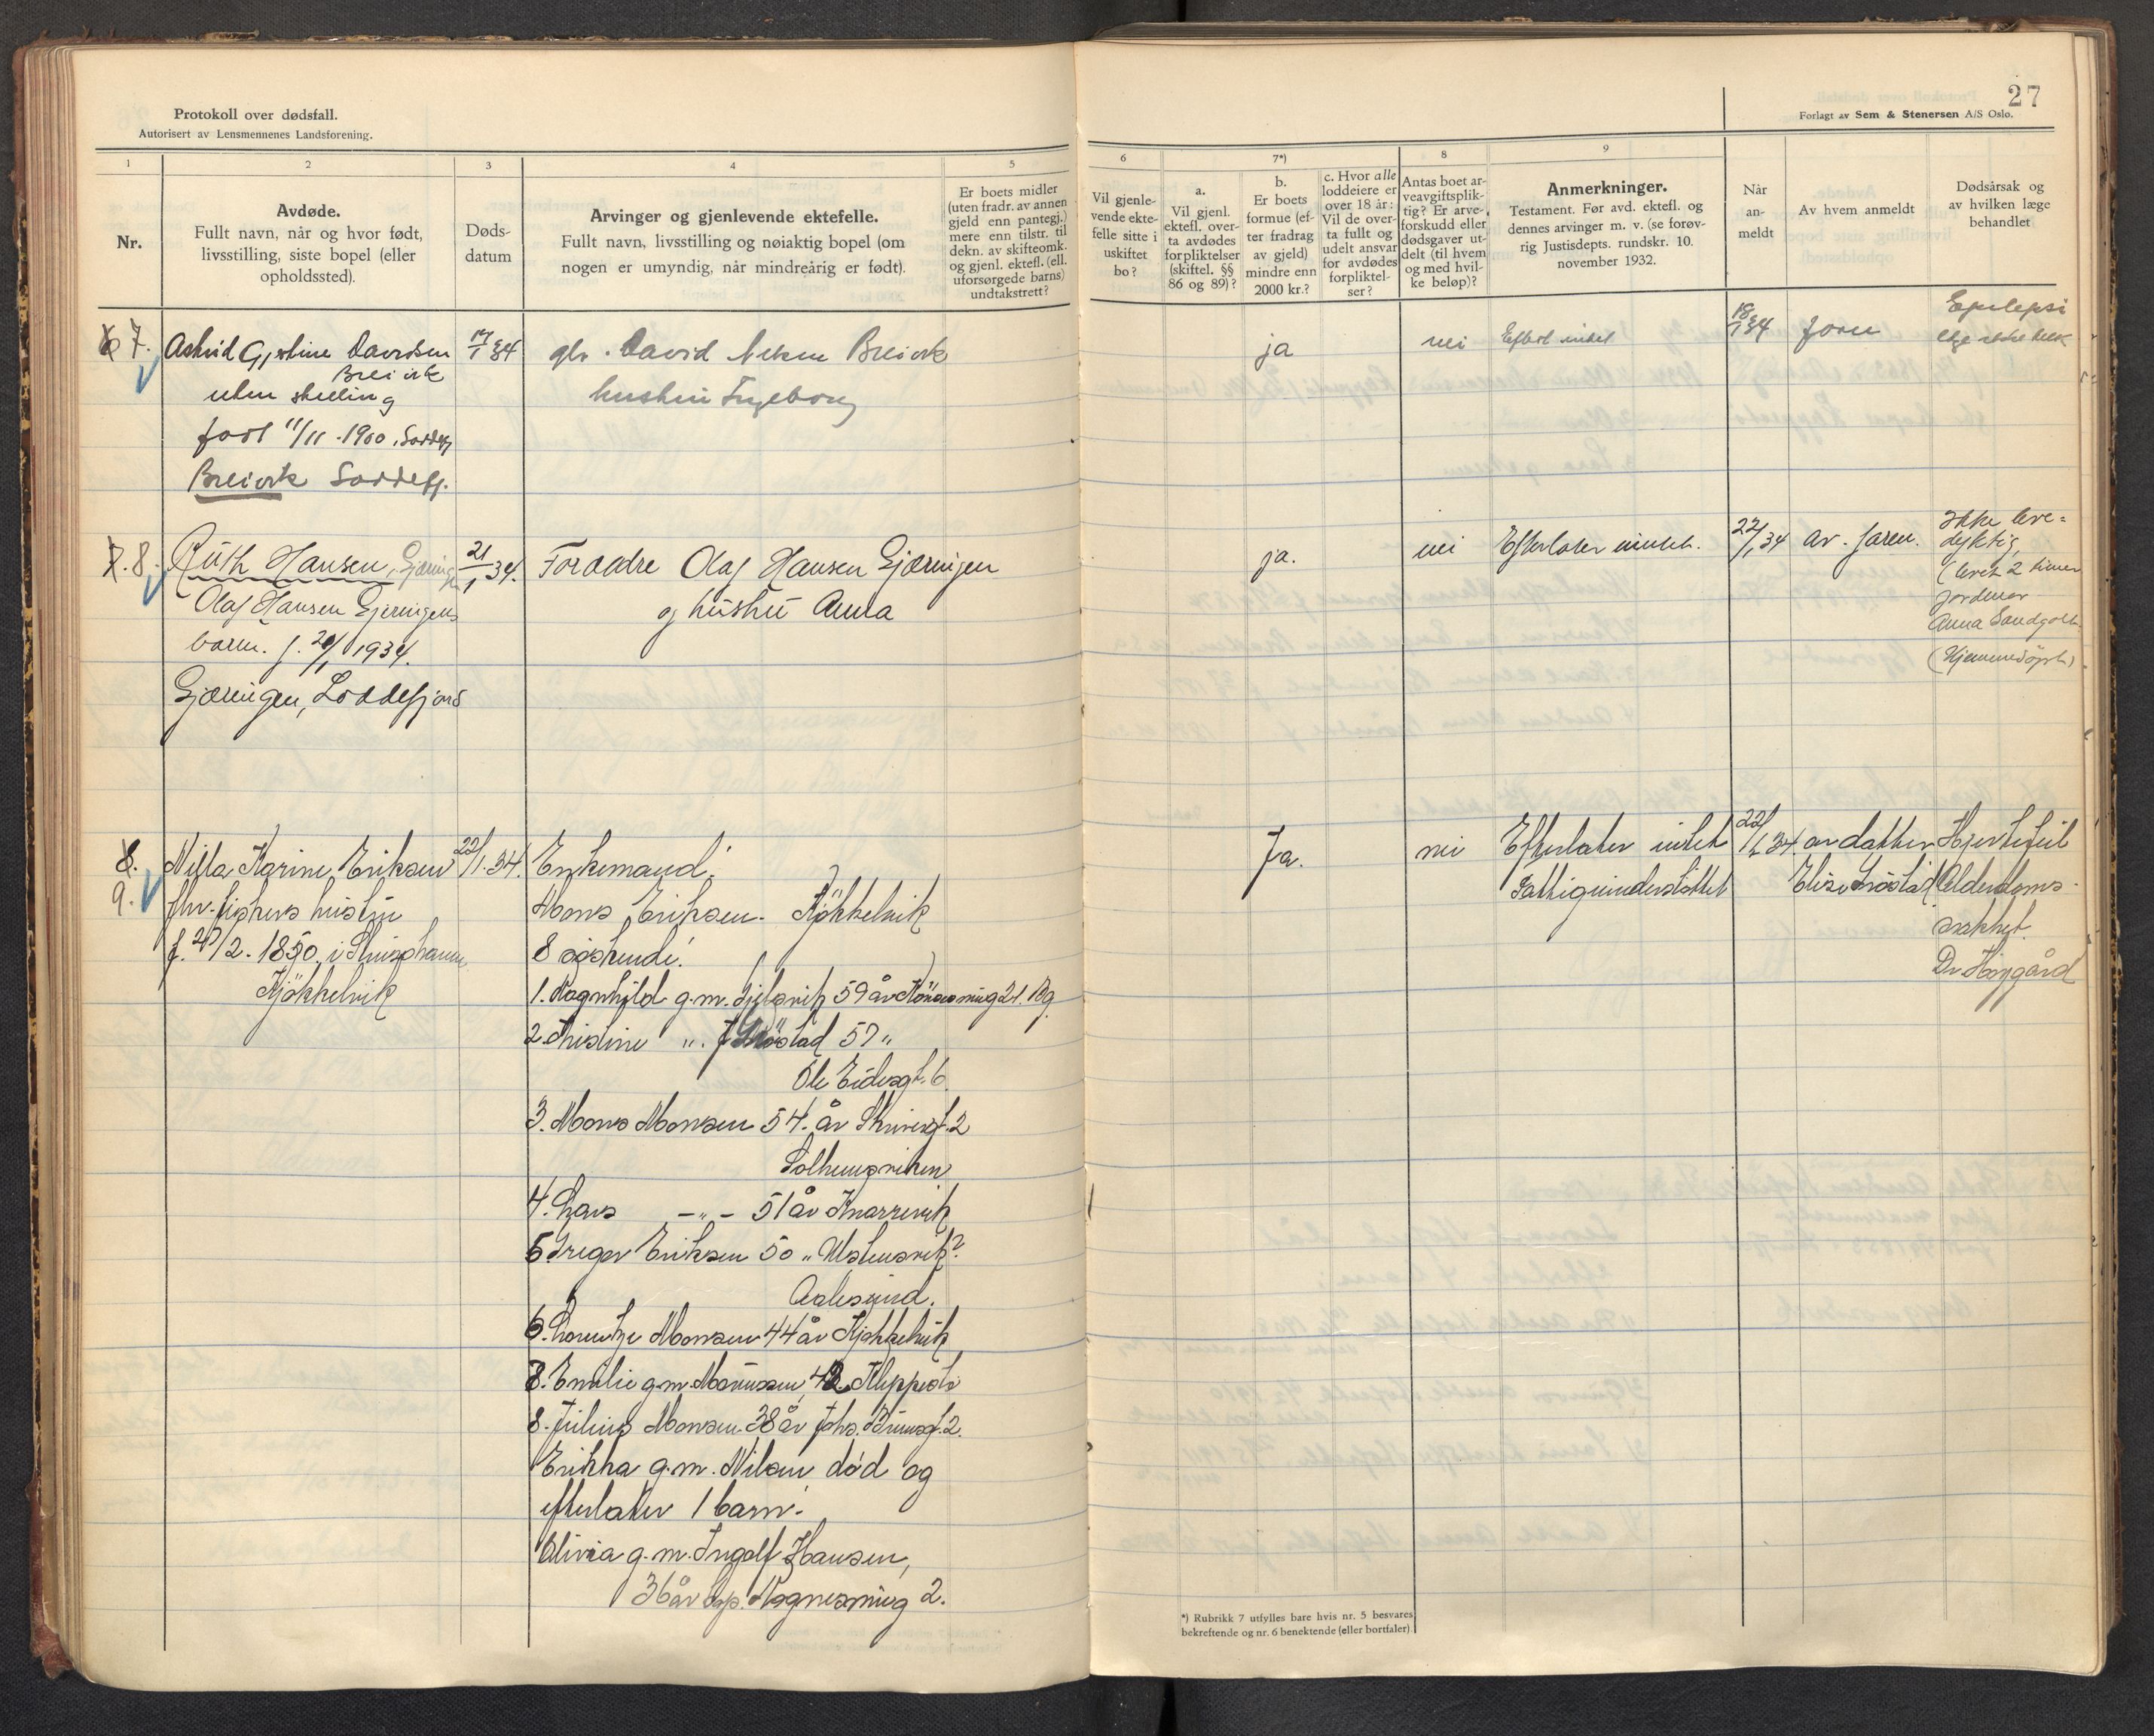 Protokoll over dødsfall.
Autorisert av Lensmennenes Landsforening.
1
2
3
4
5
Nr.
Avdøde.
Fullt navn, når og hvor født,
livsstilling, siste bopel (eller
opholdssted).
Døds-
datum
Arvinger og gjenlevende ektefelle.
Fullt navn, livsstilling og nøiaktig bopel (om
nogen er umyndig, når mindreårig er født).
Er boets midler
(uten fradr. av annen
gjeld enn pantegj.)
mere enn tilstr. til
dekn. av skifteomk.
og gjenl. ektefl. (ell.
uforsørgede barns)
undtakstrett?
7.
Astrid Gjertine Davidsen
Breivik
uten stilling
født 11/11 - 1900 i
Breivik Loddefj.
17/1 34
David Nilsen Breivik
hustru Ingeborg
8.
Ruth Hansen,
Olaf Hansen Gjeringens
barn. f. 1934.
Gjæringen, Loddefjord
21/1 34.
Foræidre Olaf Hansen Gjæringen
og hustru Anna
8.
9.
Nilla Karine Eriksen
fhv. fiskers hustru
f. 2. 1850. i
Kjøkkelvik
22/1. 34.
Enkemand:
Mons Eriksen. Kjøkkelvik
8 egtefødte
1. Ragnhild g.m. 59 år 21. Bg.
2 Kristine ". 57 "
Ole 6.
3. Mons Monsen 54. år 2
Solheimsviken
4. Lars - " - 51 år Knarrevik
5. Greger Eriksen 50 "
Aalesund.
6. Lorentze Monsen 44 år Kjøkkelvik
8. Emilie g.m. 42 Kleppestø
8. Julius Monsen 38 år Johs. Brunsgt. 2.
Erikka g.m. Nilsen død og
efterlater 1 barn.
Olivia g.m. Ingolf Hansen,
36 år Magnesmug 2.
27
Forlagt av Sem & Stenersen A/S Oslo.
6
7*)
8
9
Vil gjenle-
vende ekte-
felle sitte i
uskiftet
bo?
a.
Vil gjenl.
ektefl. over-
ta avdødes
forpliktelser
(skiftel. §§
86 og 89)?
b.
Er boets
formue (ef-
ter fradrag
av gjeld)
mindre enn
2000 kr.?
c. Hvor alle
loddeiere er
over 18 år:
Vil de over-
ta fullt og
udelt ansvar
for avdødes
forpliktel-
ser?
Antas boet ar-
veavgiftsplik-
tig? Er arve-
forskudd eller
dødsgaver ut-
delt (til hvem
og med hvil-
ke beløp)?
Anmerkninger.
Testament. Før avd. ektefl. og
dennes arvinger m. v. (se forøv-
rig Justisdepts. rundskr. 10.
november 1932.
Når
an-
meldt
Av hvem anmeldt
Dødsårsak og
av hvilken læge
behandlet
ja
nei
Efterl intet
18/1 34
Epilepsi
ja.
nei
Efterlater intet.
22/1 34
av. faren.
Ikke leve=
dyktig
(levet 2 timer
jordmor
Anna
(Hjemmedøpt)
Ja.
nei
Efterlater intet
Fattigunderstøttet
22/1 34.
av datter
Hjertefeil
Alderdoms-
svakhet.
Dr
*) Rubrikk 7 utfylles bare hvis nr. 5 besvares
bekreftende og nr. 6 benektende (eller bortfaler).